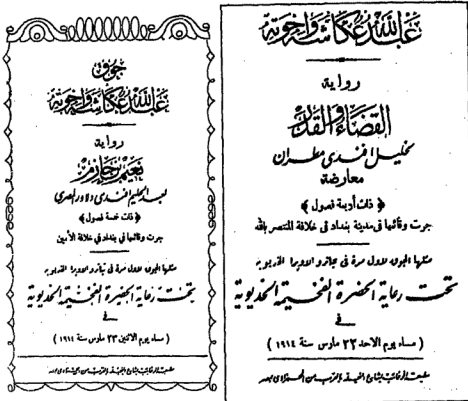 عبد الله عكاشه واخوته
رواية
القضاء والقدر
لخليل افندى مطران
معارضة
﴿ ذات أربعة فصول ﴾
جرت وقائعها فى مدينة بغداد فى خلافة المنتصر بالله
مثلها الجوق لاول مرة فى تياترو الاوبرا الخديويه
تحت رعاية الحضرة الفخيمة الخديوية
فى
( مساء يوم الاحد ٢٢ مارس سنة ١٩١٤ )
بمصر
جوق
عبد الله عكاشه واخوته
رواية
نعيم بن حازم
لعبد الحليم افندى دلاور المصرى
﴿ ذات خمسة فصول ﴾
جرت وقائعها فى بغداد فى خلافة الأمين
مثلها الجوق لاول مرة فى تياترو الاوبرا الخديويه
تحت رعاية الحضرة الفخيمة الخديوية
فى
( مساء يوم الاثنين ٢٣ مارس سنة ١٩١٤ )
بمصر